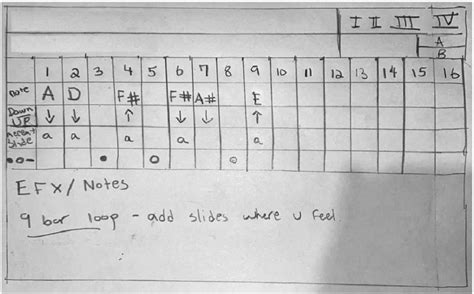 I II III IV
A
B
1 2 3 4 5 6 7 8 9 10 11 12 13 14 15 16
Note A D F# F# A# E
Down ↓ ↓ ↑ ↓ ↓ ↑
UP
Accent a a a a a
Slide
EFX/Notes
9 bar loop - add slides where u feel.